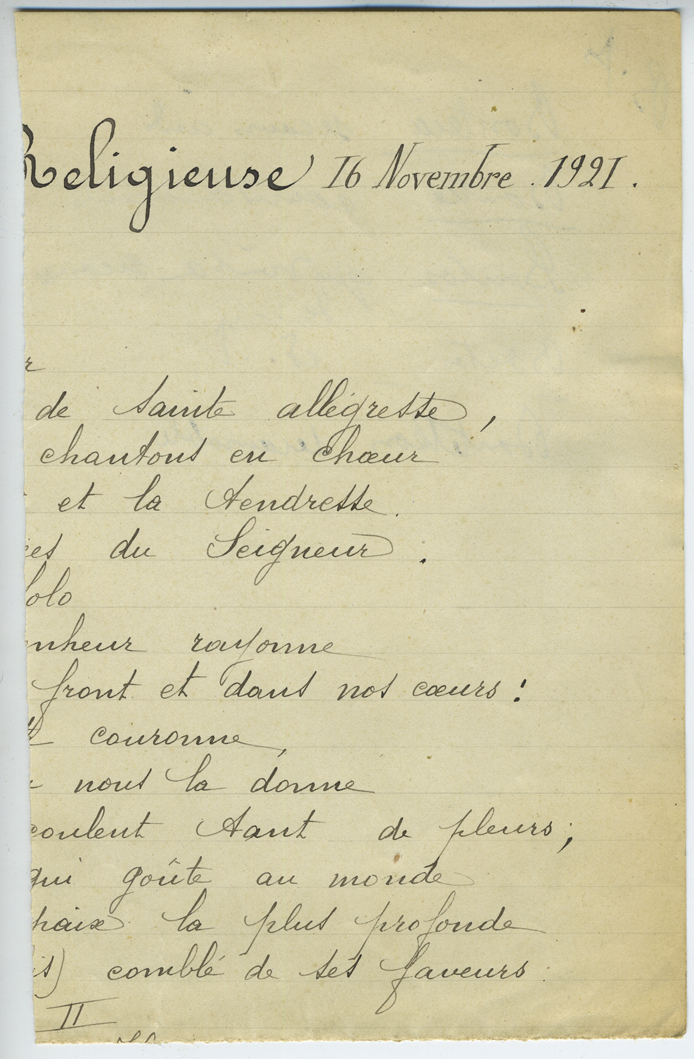 Religieuse 16 Novembre . 1921 .
r
de sainte allégresse ,
chantons en chœur
et la tendresse .
du Seigneur .
solo
nheur rayonne
front et dans nos cœurs !
couronne ,
nous la donne
coulent tant de pleurs ;
qui goûte au monde
paix la plus profonde
is) comblé de ses faveurs .
II